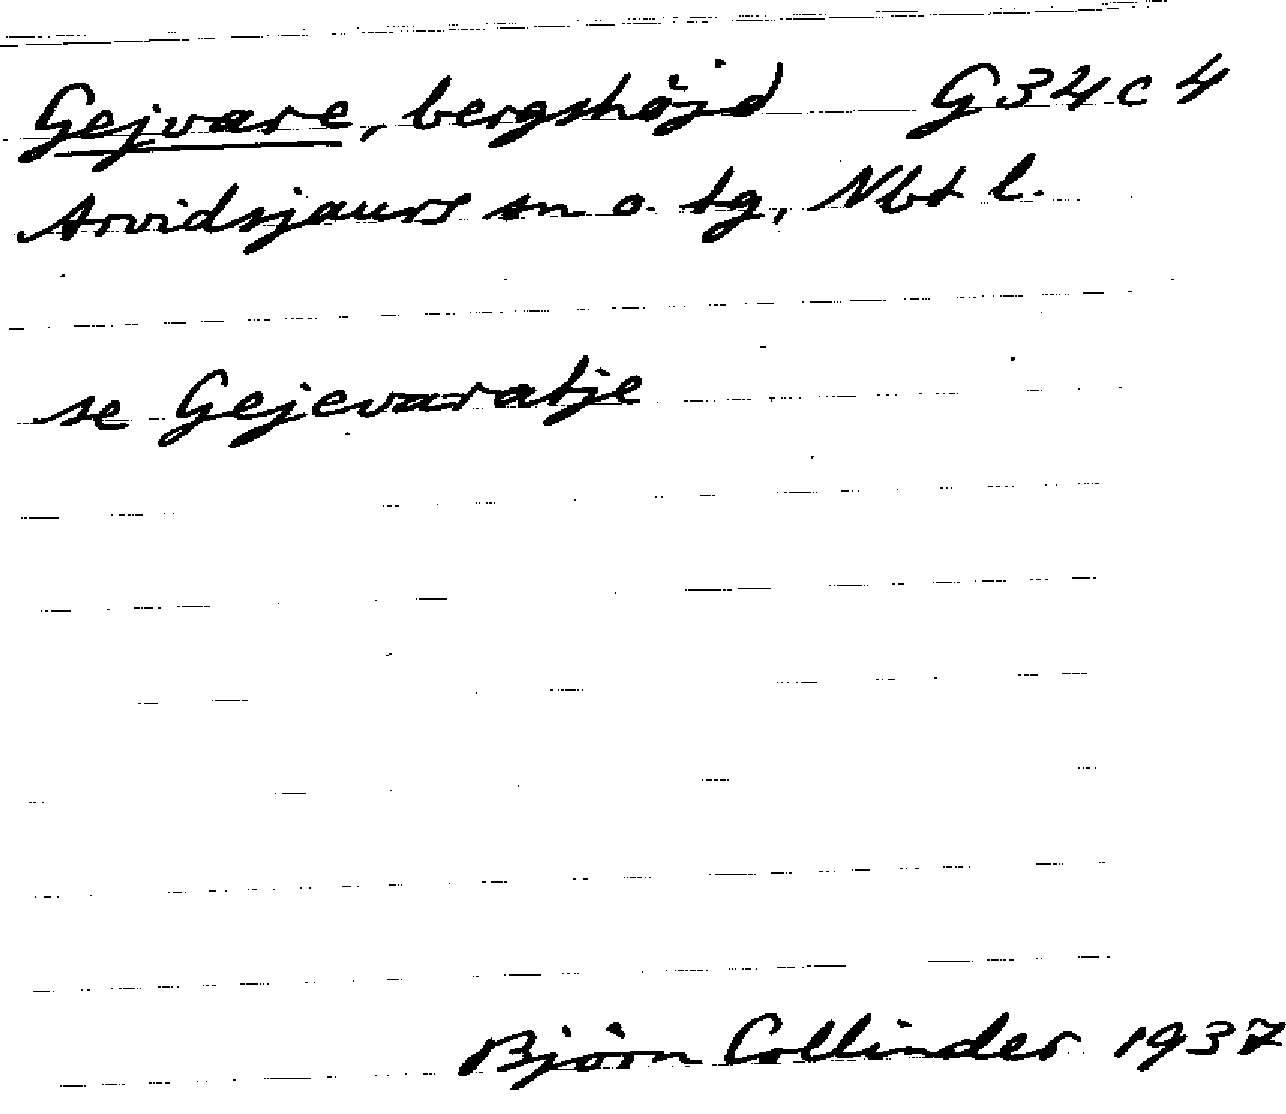 Gejvare, bergshöjd G34c4
Arvidsjaurs sn o. tg, Nbt l.
se Gejevaratje
Björn Collinder 1937